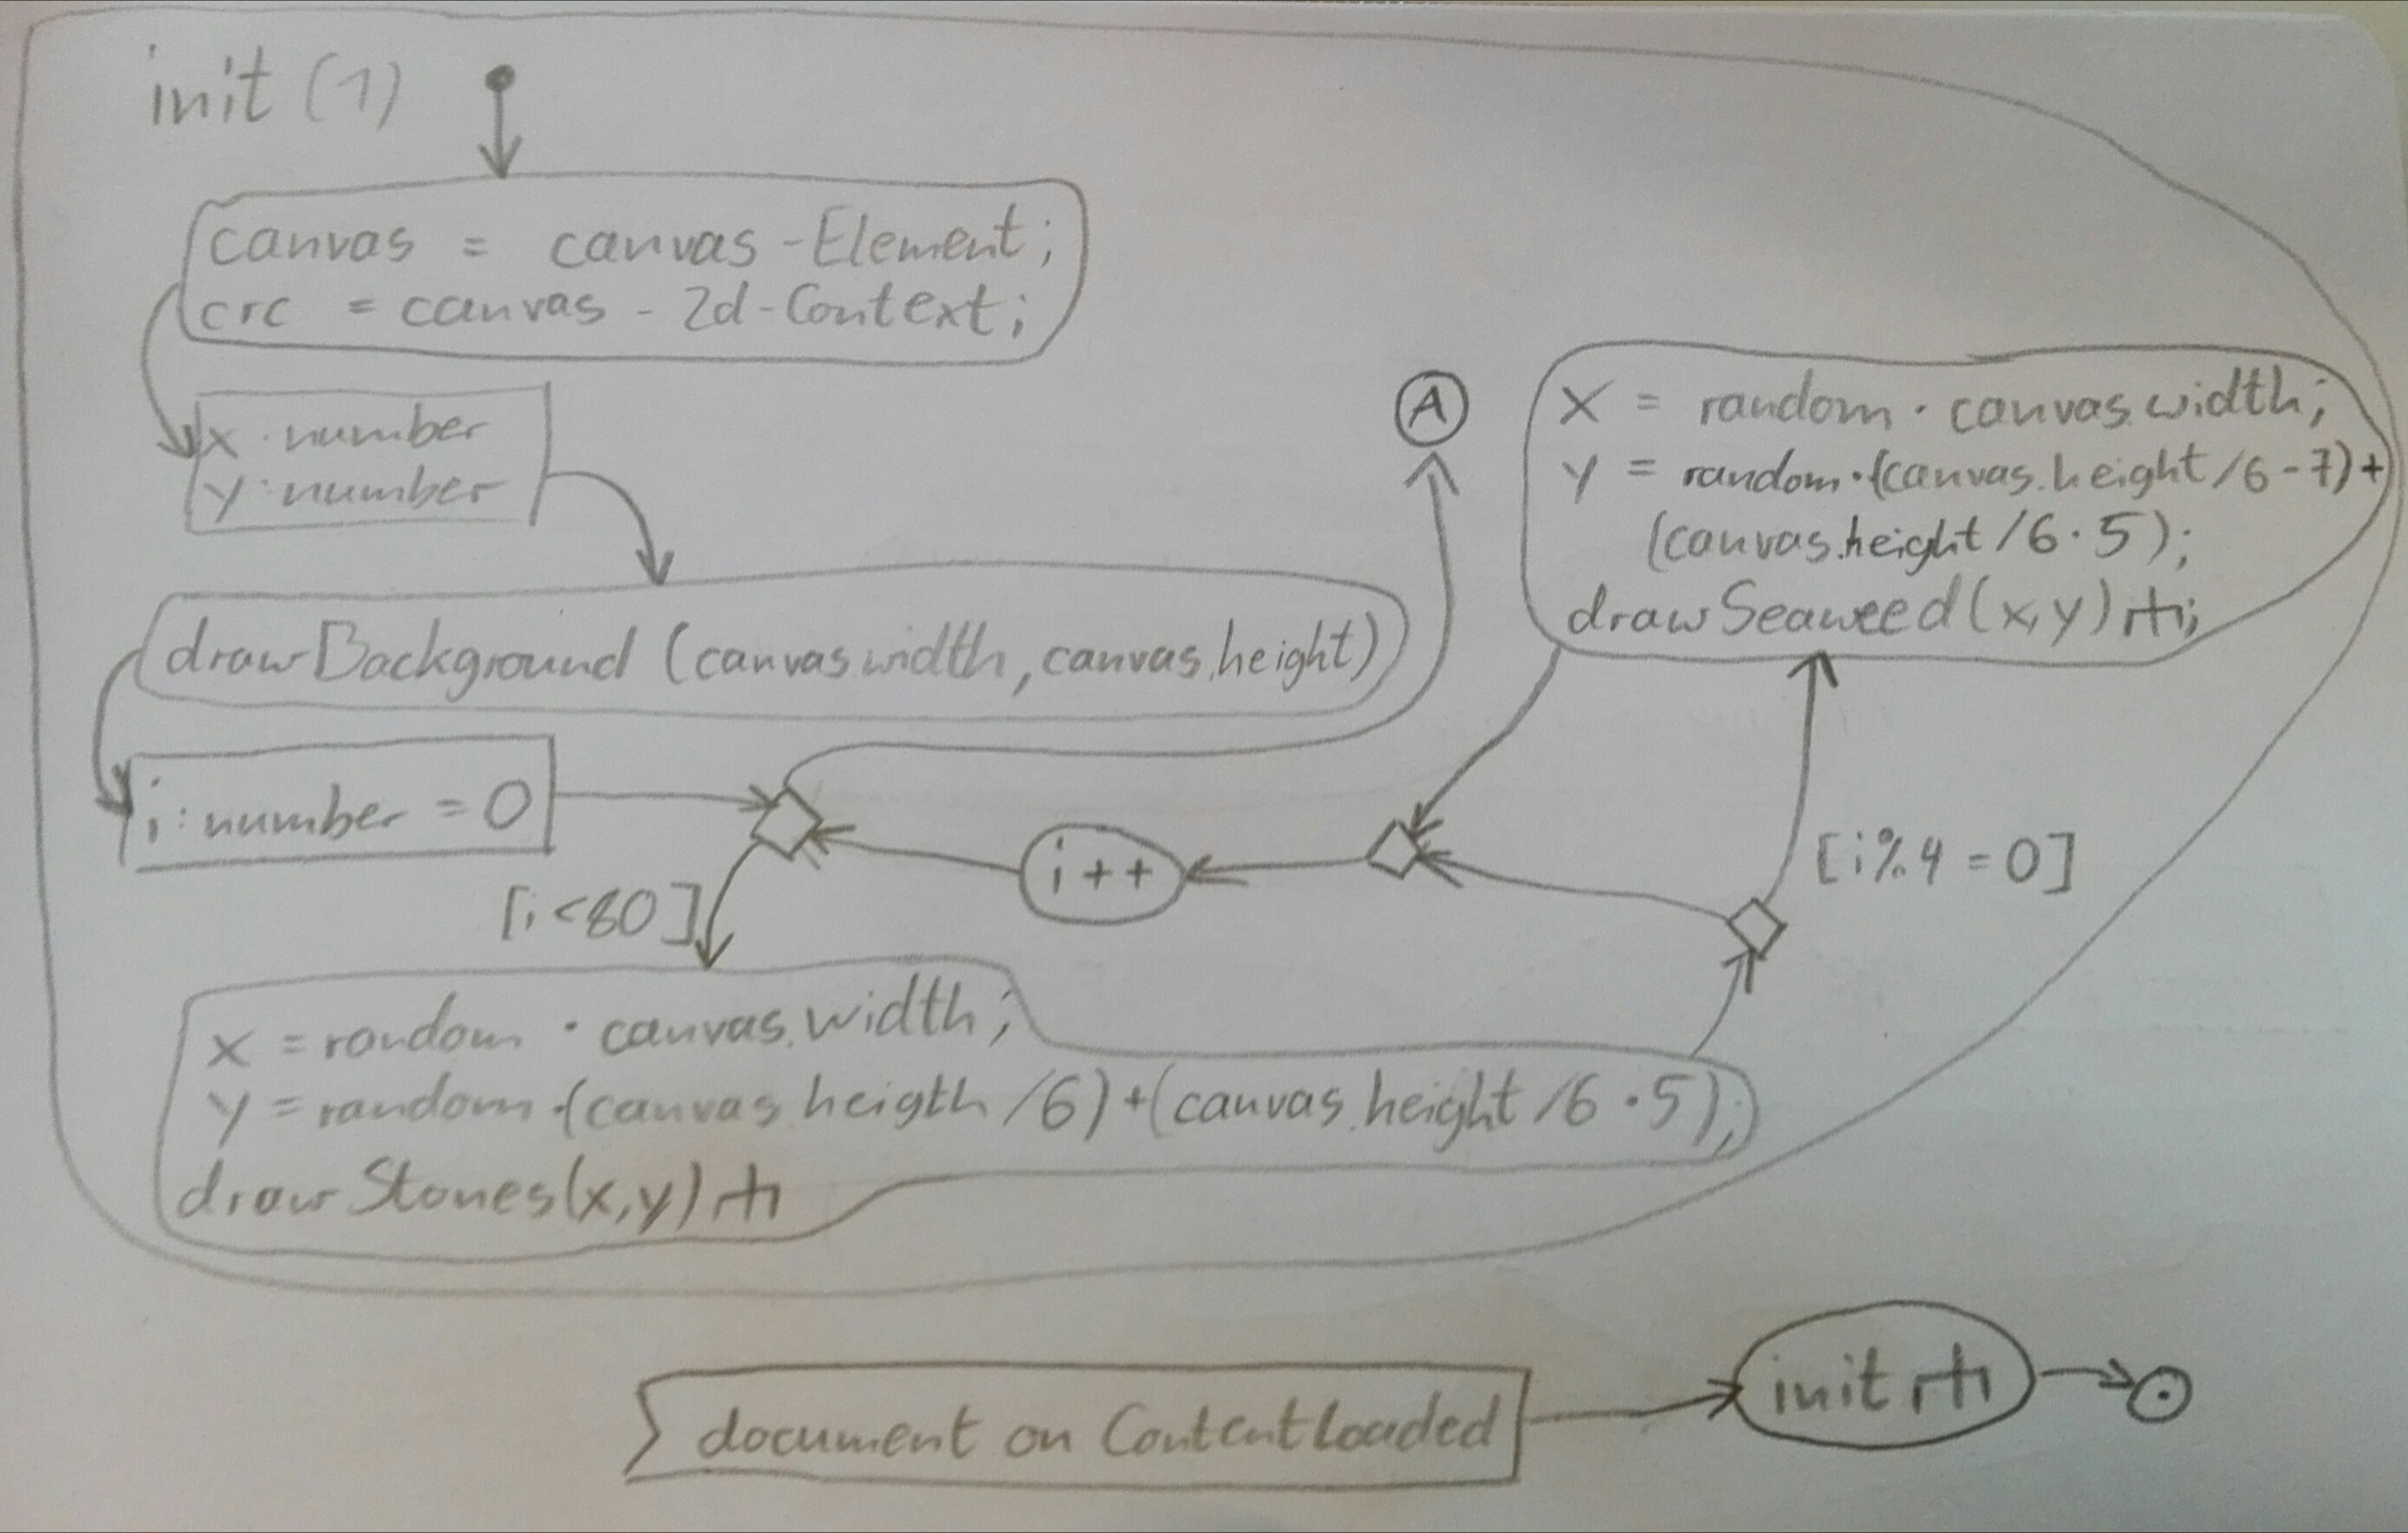 init (1)
canvas = canvas - Element;
crc = canvas - 2d - Context;
x : number
y : number
drawBackground (canvas.width, canvas.height)
i : number = 0
A
x = random · canvas.width;
y = random · (canvas.height / 6 - 7) +
(canvas.height / 6 · 5);
drawSeaweed (x, y) ;
i ++
[i < 80]
[i % 4 = 0]
x = random · canvas.width;
y = random · (canvas.heigth / 6) + (canvas.height / 6 · 5);
drawStones (x, y)
document on ContentLoaded
init